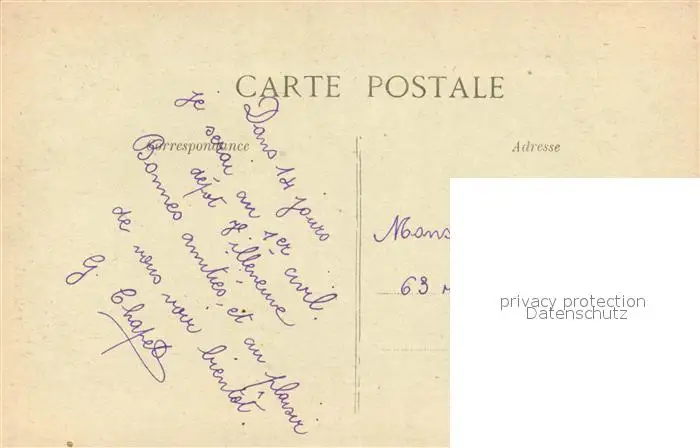 CARTE POSTALE
Correspondance
Adresse
Dans 14 jours
je serai au 1er civil.
dépôt
Bonnes amitiés et au plaisir
de vous voir bientôt
G. Chapet
Mons
63
privacy protection
Datenschutz